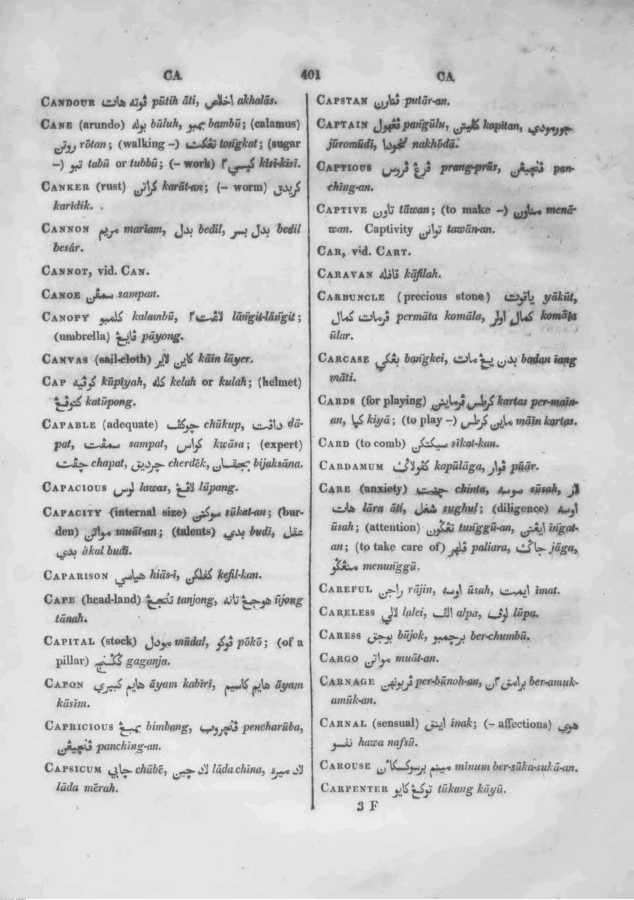 CA
401
CA
CANDOUR ڤوته هات pūtih āti, اخلاص akhalās.
CANE (arundo) بوله būluh, بمبو bambū; (calamus)
روتن rōtan; (walking –) تڠكت toṅgkat; (sugar
–) تبو tabū or tubbū; (– work) كيسي٢ kisi-kisi.
CANKER (rust) كراتن karāt-an; (– worm) كريدق
karīdik.
CANNON مريم mariam, بدل bedil, بدل بسر bedil
besār.
CANNOT, vid. CAN.
CANOE سمڤن sampan.
CANOPY كلمبو kalambū, لاڠت٢ lāṅgit-lāṅgit;
(umbrella) ڤايڠ pāyong.
CANVAS (sail-cloth) كاين لاير kāin lāyer.
CAP كوڤيه kūpīyah, كله kelah or kulah; (helmet)
كتوڤڠ katūpong.
CAPABLE (adequate) چوكڤ chūkup, داڤت dā-
pat, سمڤت sampat, كواس kwāsa; (expert)
چڤت chapat, چرديق cherdēk, بجقسان bijaksāna.
CAPACIOUS لوس lawas, لاڤڠ lāpang.
CAPACITY (internal size) سوكتن sūkat-an; (bur-
den) مواتن muāt-an; (talents) بدي budi, عقل
بدي ākal budi.
CAPARISON هياسي hiās-i, كفلكن kefil-kan.
CAPE (head-land) تنجڠ tanjong, هوجڠ تانه ūjong
tānah.
CAPITAL (stock) مودل mūdal, ڤوكو pōkō; (of a
pillar) gaganja.
CAPON هايم كبيري āyam kabīri, هايم كاسيم āyam
kāsim.
CAPRICIOUS بمبڠ bimbang, ڤنچروب pencharūba,
ڤنچيڠن panching-an.
CAPSICUM چابي chābē, لاد چين lāda china, لاد ميره
lāda mērah.
CAPSTAN ڤتارن putār-an.
CAPTAIN ڤڠهول paṅgūlu, كڤيتن kapitan, جورمودي
jūromūdi, نخودا nakhōdā.
CAPTIOUS ڤرڠ ڤروس prang-prūs, ڤنچيڠن pan-
ching-an.
CAPTIVE تاون tāwan; (to make –) مناون menā-
wan. Captivity تواتن tawān-an.
CAR, vid. CART.
CARAVAN قافله kāfilah.
CARBUNCLE (precious stone) ياقوت yākūt,
ڤرمات كمال permāta komāla, كمال اولر komāla
ūlar.
CARCASE بڠكي baṅgkei, بدن يڠ مات badan iang
māti.
CARDS (for playing) كرطس ڤرماينن kartas per-main-
an, كيا kiyā; (to play –) ماين كرطس māin kartas.
CARD (to comb) سيكتكن sīkat-kan.
CARDAMUM كڤولاݢ kapūlāga, ڤوار pūār.
CARE (anxiety) چنت chinta, سوسه sūsah, لار
هات lāra āti, شغل sughul; (diligence) اوسه
ūsah; (attention) تڠگون tuṅggū-an, ايڠتن iṅgat-
an; (to take care of) ڤلهر paliara, جاݢ jāga,
منڠگو menuṅggū.
CAREFUL راجن rājin, اوسه ūsah, ايمت imat.
CARELESS لالي lalei, الڤ alpa, لوڤ lūpa.
CARESS بوجق būjok, برچمبو ber-chumbū.
CARGO مواتن muāt-an.
CARNAGE ڤربونهن per-būnoh-an, برامق٢ن ber-amuk-
amūk-an.
CARNAL (sensual) اينق īnak; (– affections) هوي
نفسو hawa nafsū.
CAROUSE مينم برسوك٢ان minum ber-sūka-sukā-an.
CARPENTER توكڠ كايو tūkang kāyū.
3 F